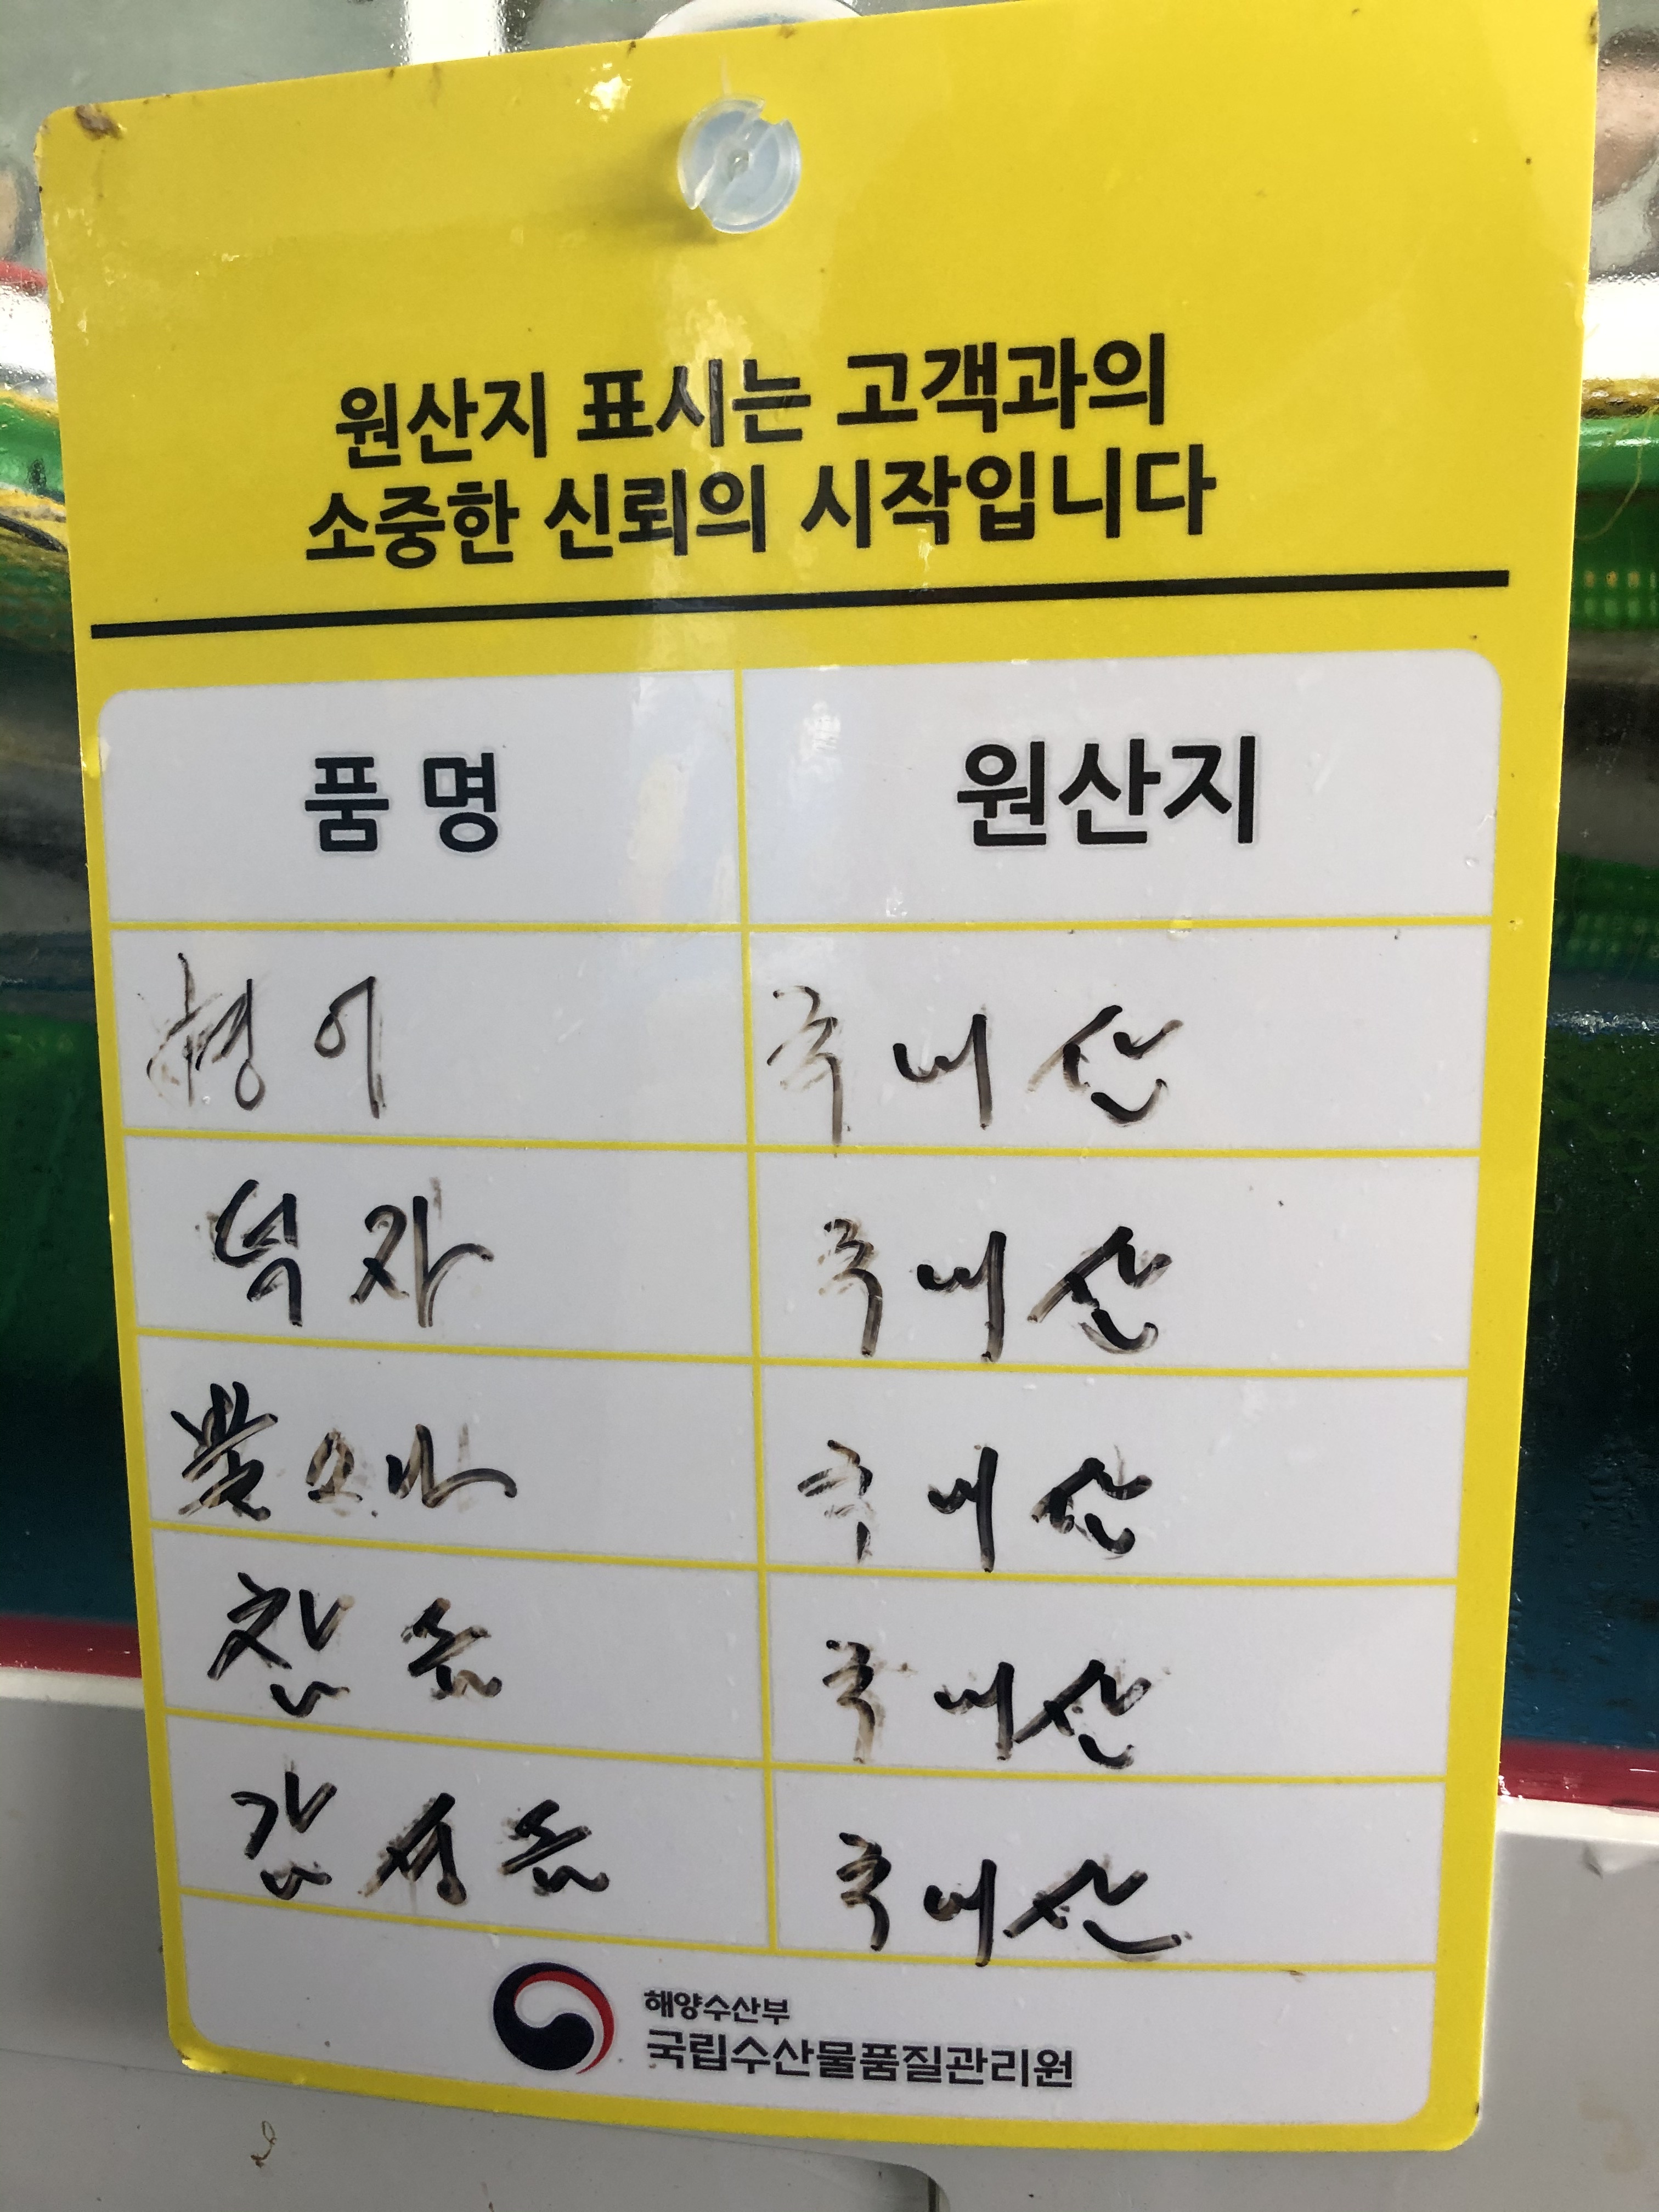 원산지 표시는 고객과의
소중한 신뢰의 시작입니다
품명 원산지
병어 국내산
덕자 국내산
뿔소라 국내산
참돔 국내산
감성돔 국내산
해양수산부
국립수산물품질관리원